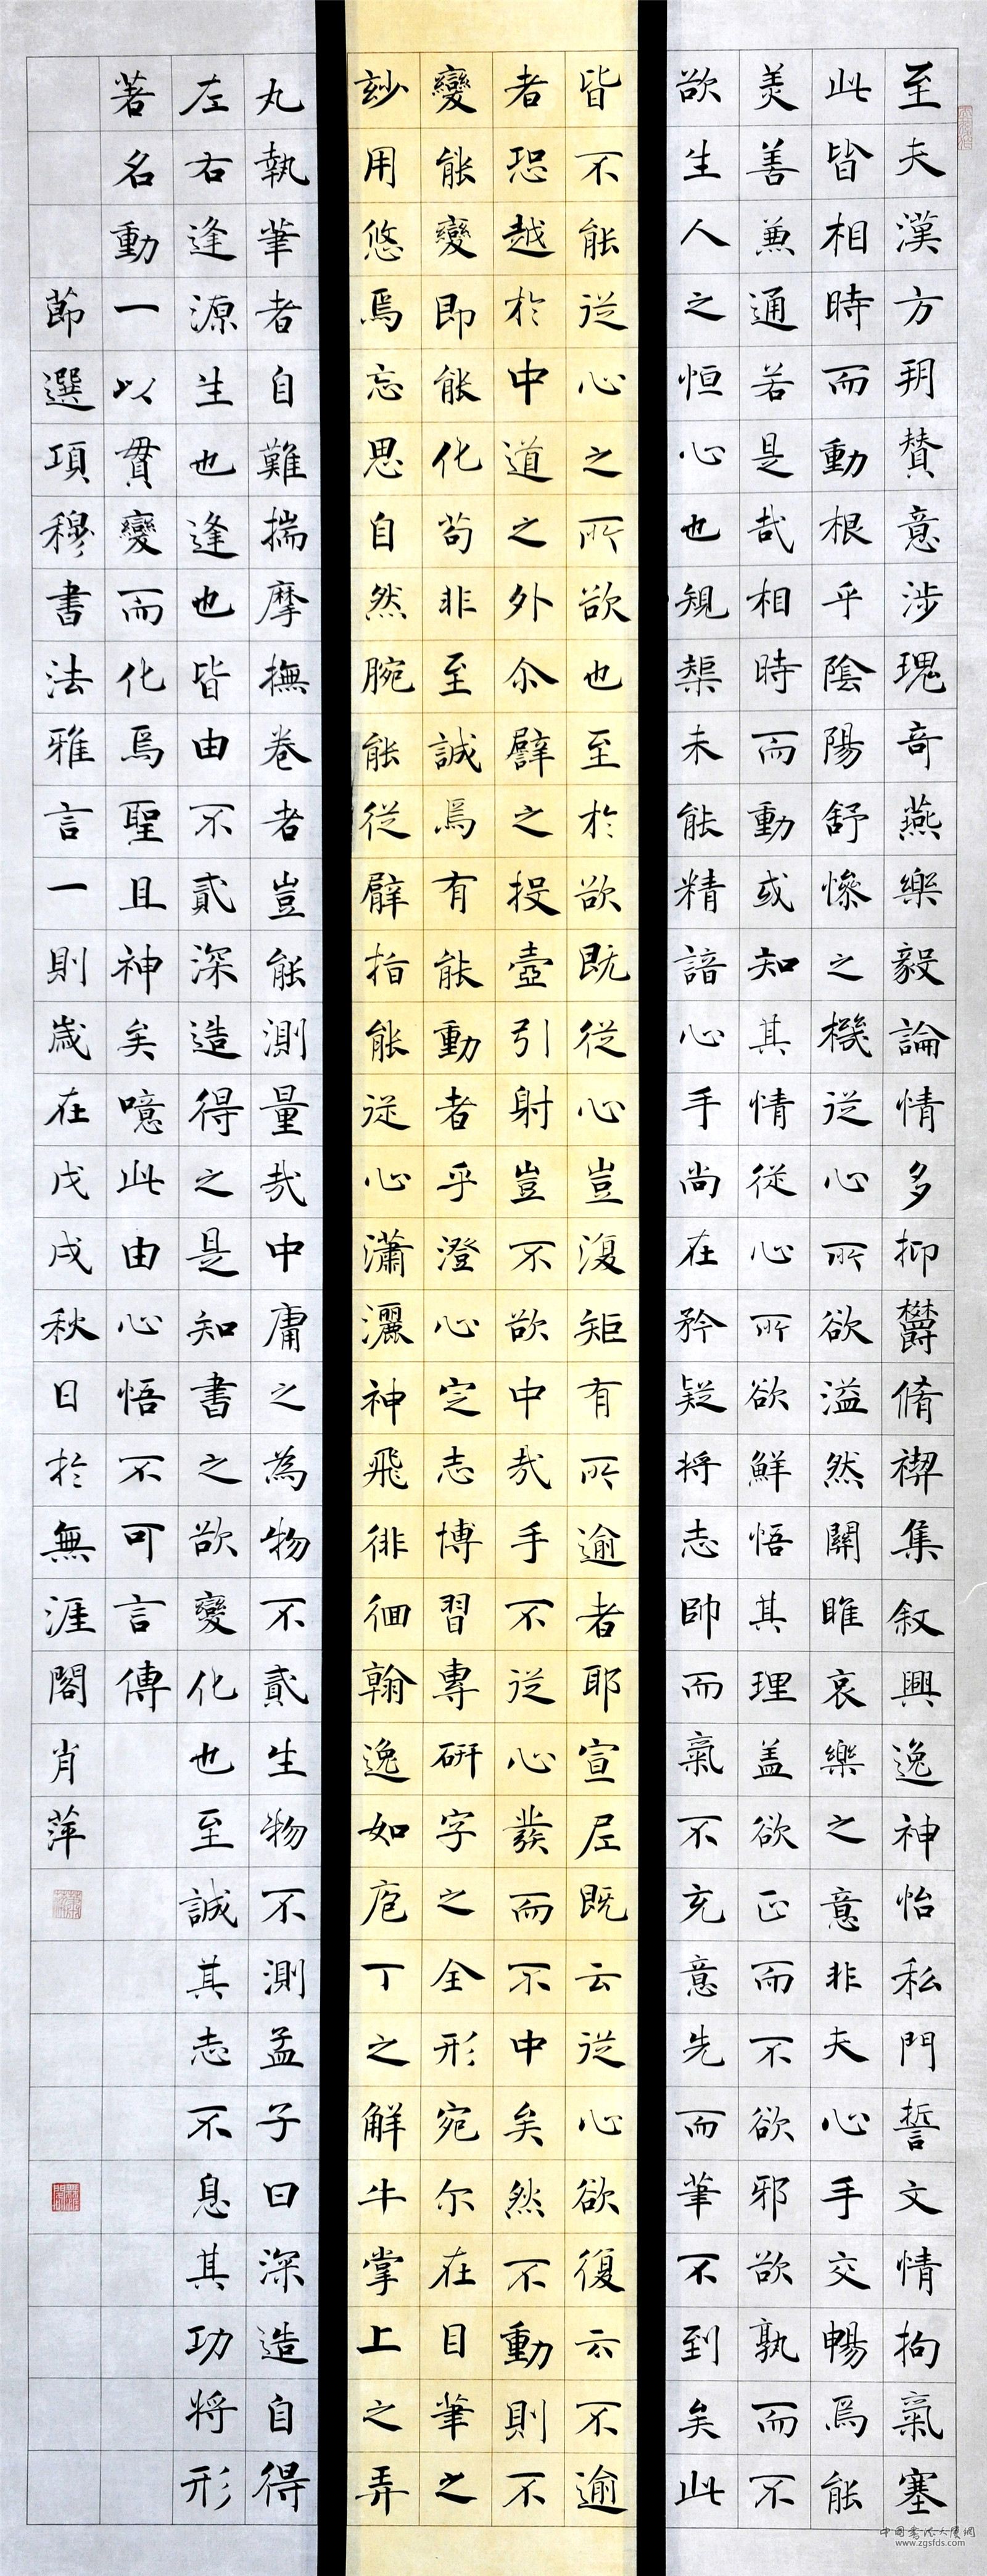 至夫漢方朔賛意涉瑰奇燕樂毅論情多抑欝脩禊集叙興逸神怡私門誓文情拘氣塞
此皆相時而動根乎陰陽舒慘之機從心所欲溢然關睢哀樂之意非夫心手交暢焉能
美善兼通若是哉相時而動或知其情從心所欲鮮悟其理盖欲正而不欲邪欲孰而不
欲生人之恒心也規榘未能精諳心手尚在矜疑将志帥而氣不充意先而筆不到矣此
皆不能從心之所欲也至於欲既從心豈復矩有所逾者耶宣尼既云從心欲復云不逾
者恐越於中道之外尒譬之投壺引射豈不欲中哉手不從心發而不中矣然不動則不
變能變即能化苟非至誠焉有能動者乎澄心定志博習專研字之全形宛尔在目筆之
玅用悠焉忘思自然腕能從臂指能從心瀟灑神飛徘徊翰逸如庖丁之解牛掌上之弄
丸執筆者自難揣摩撫卷者豈能測量哉中庸之為物不貳生物不測孟子曰深造自得
左右逢源生也逢也皆由不貳深造得之是知書之欲變化也至誠其志不息其功將形
著名動一以貫變而化焉聖且神矣噫此由心悟不可言傳
節選項穆書法雅言一則歲在戊戌秋日於無涯閣肖萍
中国书法人才网
www.zgsfds.com